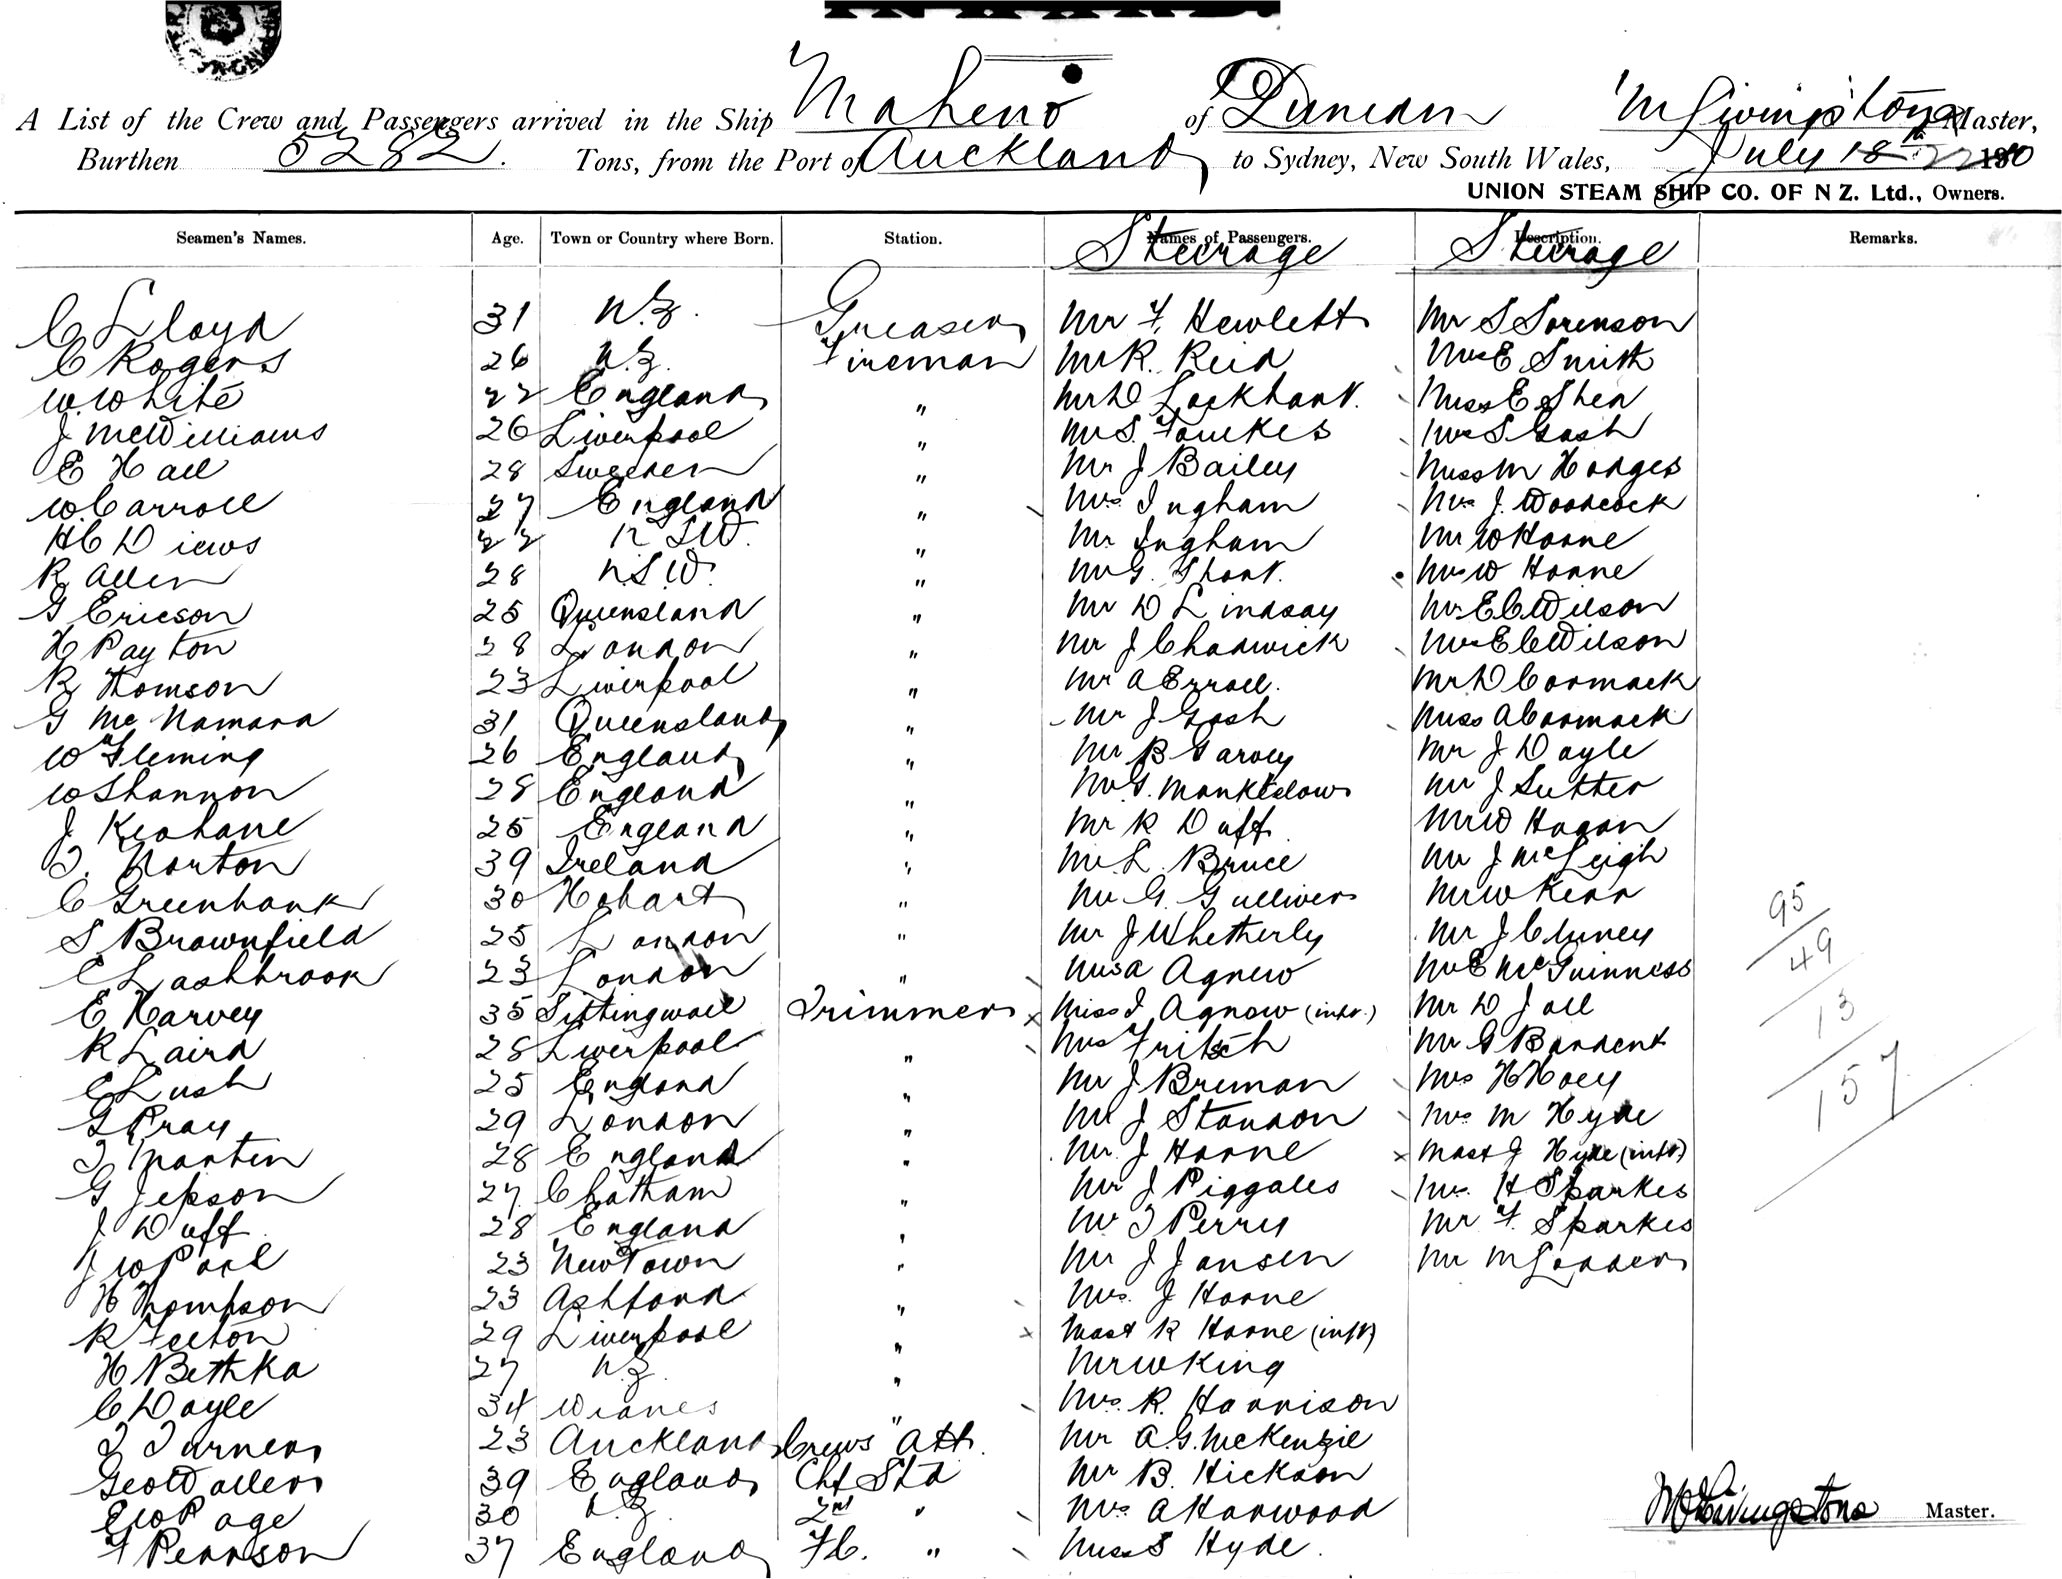 A List of the Crew and Passengers arrived in the Ship Maheno of Dunedin M Livingstone Master,
Burthen 5282. Tons, from the Port of Auckland to Sydney, New South Wales, July 18 22 1910
UNION STEAM SHIP CO. OF N Z. Ltd., Owners.
Seamen's Names. Age. Town or Country where Born. Station. Names of Passengers. Steerage Description. Steerage Remarks.
C Lloyd 31 N.Z. Greaser Mr F. Hewlett Mr S Sorenson
C Rogers 26 N.Z. Fireman Mr R. Reid Mrs E Smith
W. White 22 England " Mr D Lockhart. Miss E Shea
J McWilliams 26 Liverpool " Mr S. Fowkes Mrs S Gash
E Hall 28 Sweden " Mr J Bailey Miss M Hodges
W. Carroll 27 England " Mrs Ingham Mrs J. Woodcock
H C Diews 22 NSW. " Mr Ingham Mr W Horne
R Allen 28 N.S.W. " Mr G. Short. Mrs W Horne
G Ericson 25 Queensland " Mr D Lindsay Mr E C Wilson
H Payton 28 London " Mr J Chadwick Mrs E C Wilson
R Thomson 23 Liverpool " Mr A Erroll. Mr D Cormack
G McNamara 31 Queensland " Mr J Gash Miss A Cormack
W Fleming 26 England " Mr B Garvey Mr J Doyle
W Shannon 28 England " Mr G. Monkslow Mr J Sutter
J Keohane 25 England " Mr R Duff Mr W Hogan
T. Norton 39 Ireland " Mr L. Bruce Mr J McLeigh
C Greenhank 30 Hobart " Mr G. Gulliver Mr W Kerr
S Brownfield 25 London " Mr J Whetherly Mr J Cluney 95
C Lashbrook 23 London " Mrs A Agnew Mr E McGuinness 49
E Harvey 35 Sittingwall Trimmer Miss I Agnew (inft.) Mr D Jall 13
R Laird 28 Liverpool " Mrs Fritsch Mr G Bardent
C Lush 25 England " Mr J Breman Mrs H Hoey 157
G Pray 29 London " Mr J Standon Mrs M Hyde
T Martin 28 England " Mr. J Horne Mast J Hyde (inft)
G Jepson 27. Chatham " Mr J Piggales Mrs. H Sparkes
J Duff 28 England " Mr T Perry Mr F. Sparkes
J W Pool 23 NewTown " Mr J Jansen Mr M Lodder
H Thompson 23 Ashford " Mrs. J Horne
R Feeton 29 Liverpool " Mast R Horne (inft)
H Bethka 27 N.Z. " Mr W King
C Doyle 34 " Mrs. R. Harrison
T Turner 23 Auckland Crews Att. Mr A.G. McKenzie
Geo Waller 39 England Chf Std Mr B. Hickson
E W Page 30 N.Z. 2nd " Mrs A Harwood M Livingstone Master.
F Pearson 37 England F.C. " Miss S Hyde.